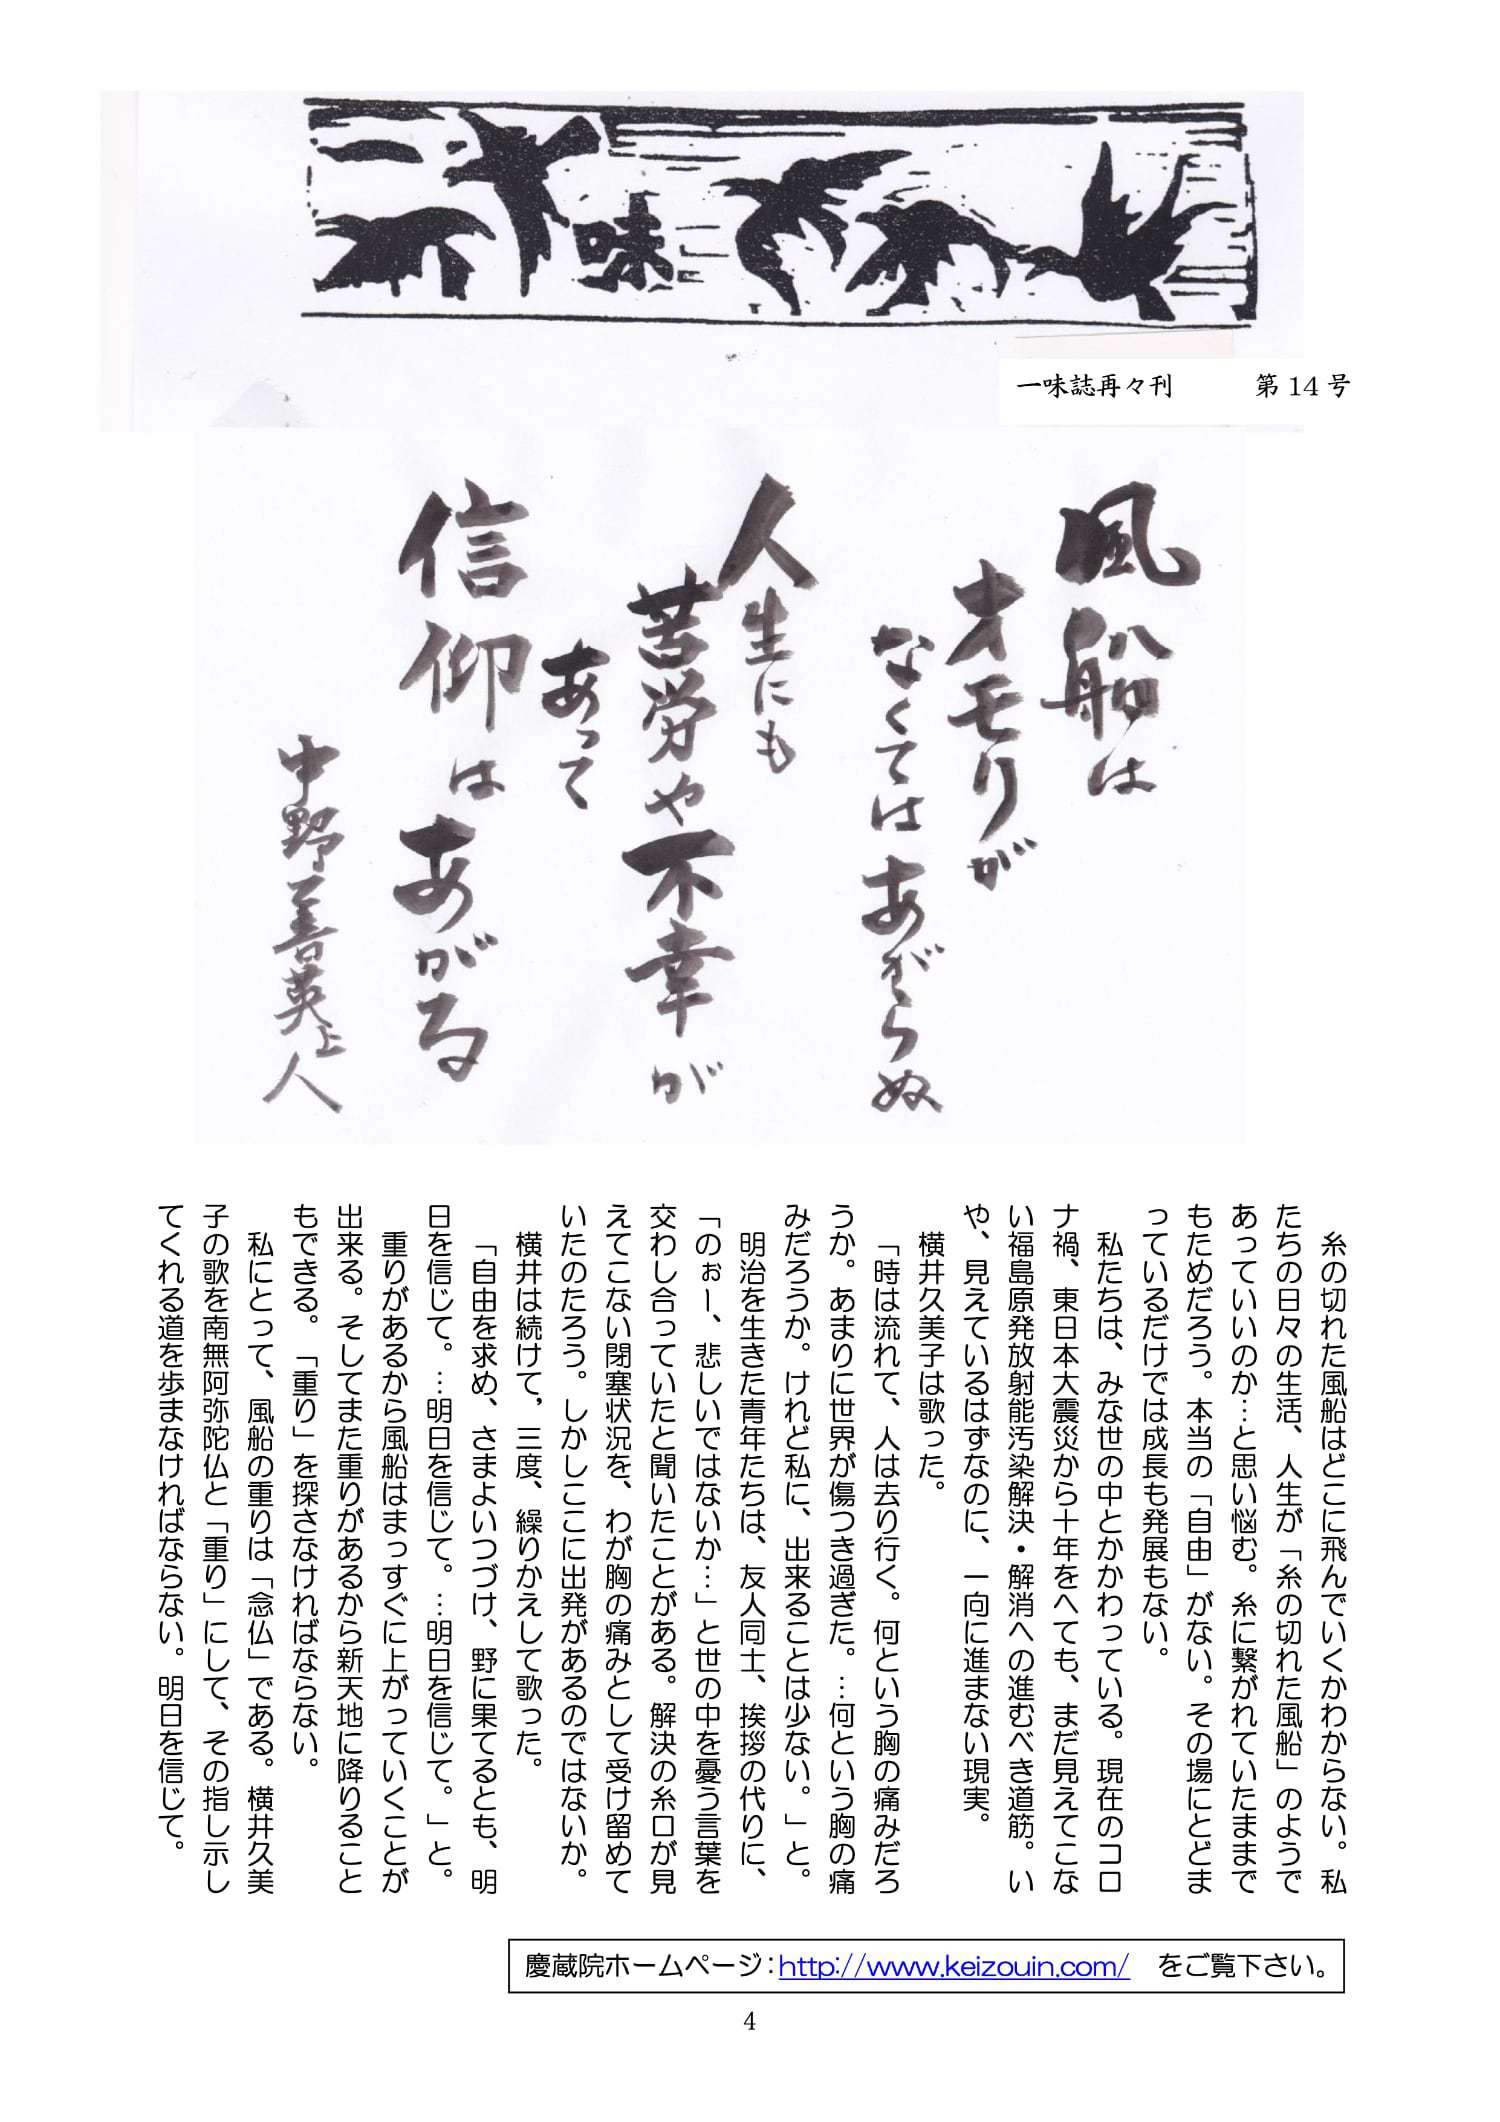 一味
一味誌再々刊　第14号
風船は
オモリが
なくてはあがらぬ
人生にも
苦労や不幸が
あって
信仰はあがる
中野善英上人
糸の切れた風船はどこに飛んでいくかわからない。私
たちの日々の生活、人生が「糸の切れた風船」のようで
あっていいのか…と思い悩む。糸に繋がれていたままで
もためだろう。本当の「自由」がない。その場にとどま
っているだけでは成長も発展もない。
私たちは、みな世の中とかかわっている。現在のコロ
ナ禍、東日本大震災から十年をへても、まだ見えてこな
い福島原発放射能汚染解決・解消への進むべき道筋。い
や、見えているはずなのに、一向に進まない現実。
横井久美子は歌った。
「時は流れて、人は去り行く。何という胸の痛みだろ
うか。あまりに世界が傷つき過ぎた。…何という胸の痛
みだろうか。けれど私に、出来ることは少ない。」と。
明治を生きた青年たちは、友人同士、挨拶の代りに、
「のぉー、悲しいではないか…」と世の中を憂う言葉を
交わし合っていたと聞いたことがある。解決の糸口が見
えてこない閉塞状況を、わが胸の痛みとして受け留めて
いたのたろう。しかしここに出発があるのではないか。
横井は続けて，三度、繰りかえして歌った。
「自由を求め、さまよいつづけ、野に果てるとも、明
日を信じて。…明日を信じて。…明日を信じて。」と。
重りがあるから風船はまっすぐに上がっていくことが
出来る。そしてまた重りがあるから新天地に降りること
もできる。「重り」を探さなければならない。
私にとって、風船の重りは「念仏」である。横井久美
子の歌を南無阿弥陀仏と「重り」にして、その指し示し
てくれる道を歩まなければならない。明日を信じて。
慶蔵院ホームページ：http://www.keizouin.com/　をご覧下さい。
4